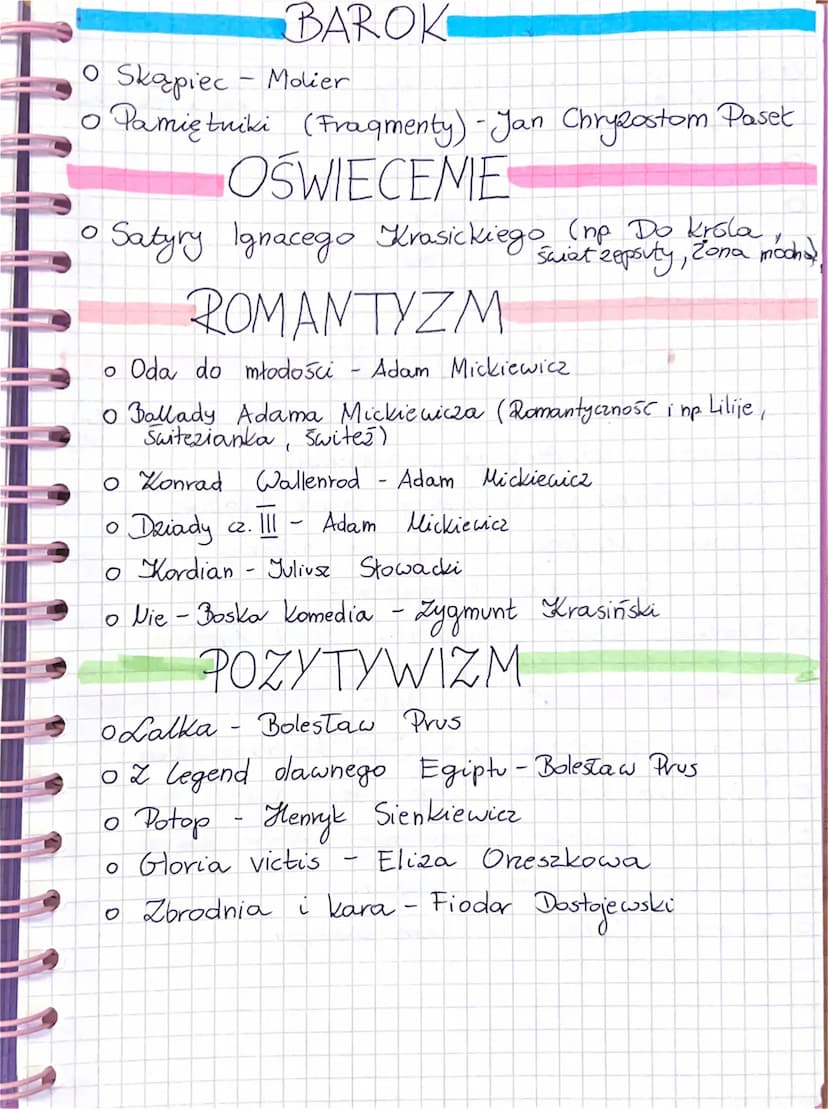 BAROK
o Skąpiec - Molier
o Pamiętniki (Fragmenty) - Jan Chryzostom Pasek
OŚWIECENIE
o Satyry Ignacego Krasickiego (np Do króla,
świat zepsuty, Żona modna),
ROMANTYZM
o Oda do młodości - Adam Mickiewicz
o Ballady Adama Mickiewicza (Romantyczność i np Lilije,
Świtezianka, Świteź)
o Konrad Wallenrod - Adam Mickiewicz
o Dziady cz. III - Adam Mickiewicz
o Kordian - Juliusz Słowacki
o Nie - Boska komedia - Zygmunt Krasiński
POZYTYWIZM
o Lalka - Bolesław Prus
o Z legend dawnego Egiptu - Bolesław Prus
o Potop - Henryk Sienkiewicz
o Gloria victis - Eliza Orzeszkowa
o Zbrodnia i kara - Fiodor Dostojewski